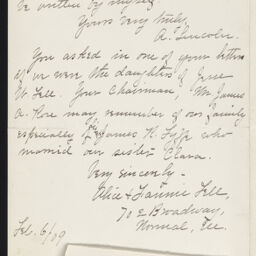 be written by myself.
Yours very truly,
A. Lincoln.
You asked in one of your letters
if we were the daughters of Jesse
W. Fell. Your Chairman, Mr. James
A. Rose may remember of our family
especially of James R. who
married our sister Clara.
Very sincerely -
Alice & Fannie Fell,
70 E Broadway,
Normal, Ill.
Feb. 6/09